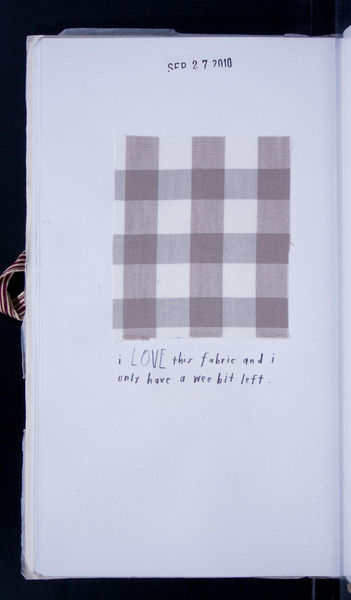 SEP 27 2010
i LOVE this fabric and i
only have a wee bit left.